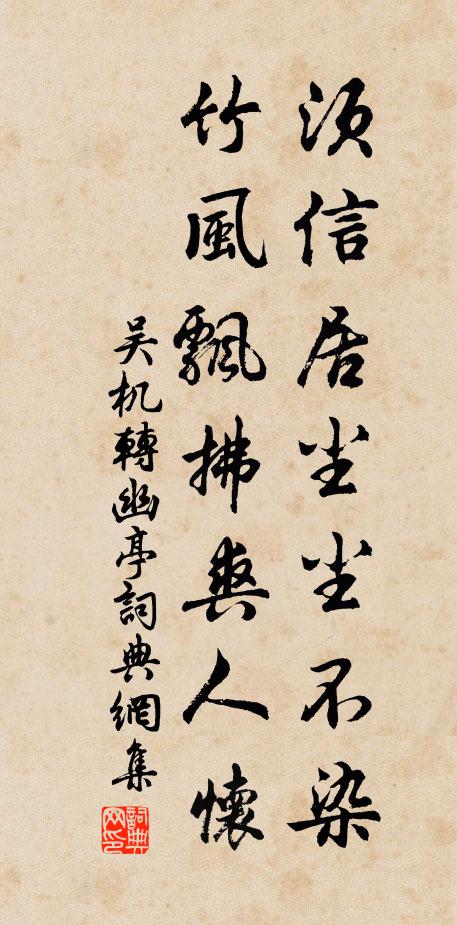 须信居尘尘不染
竹風飄拂爽人懷
吴机轉幽亭詞典網集
詞典网印